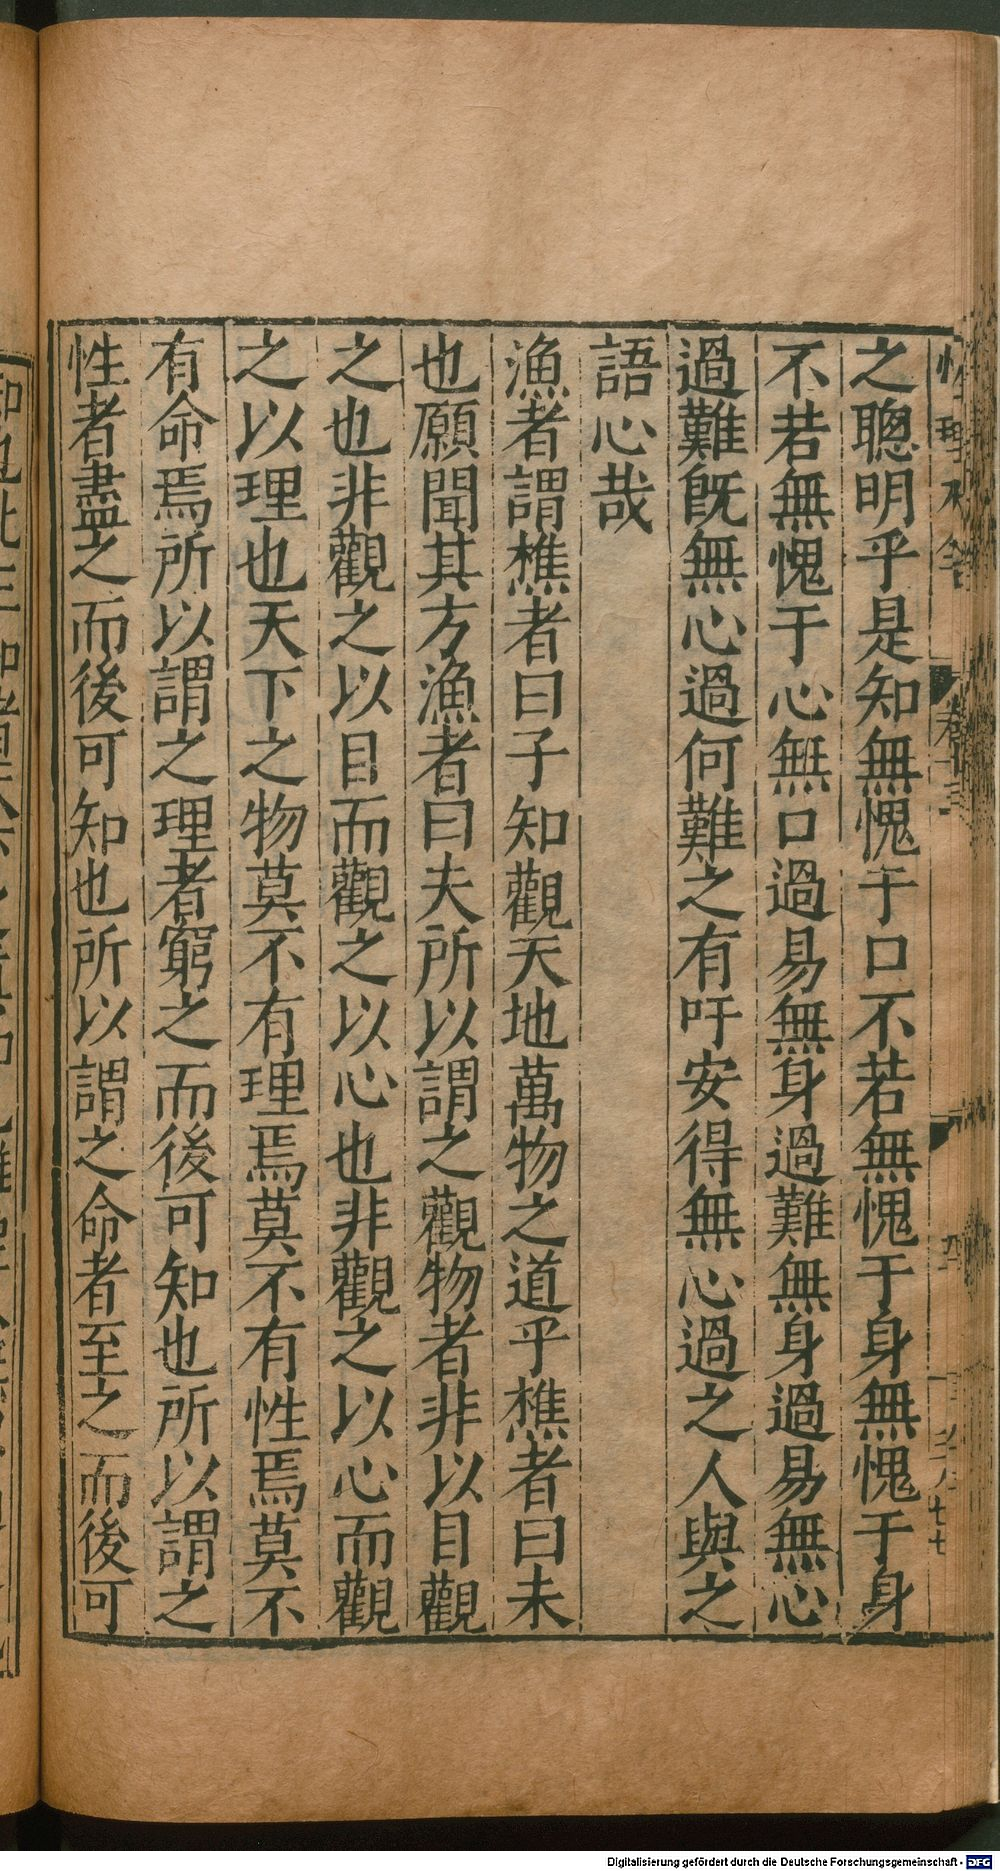 之聰明乎是知無愧于口不若無愧于身無愧于身
不若無愧于心無口過易無身過難無身過易無心
過難既無心過何難之有吁安得無心過之人與之
語心哉
漁者謂樵者曰子知觀天地萬物之道乎樵者曰未
也願聞其方漁者曰夫所以謂之觀物者非以目觀
之也非觀之以目而觀之以心也非觀之以心而觀
之以理也天下之物莫不有理焉莫不有性焉莫不
有命焉所以謂之理者窮之而後可知也所以謂之
性者盡之而後可知也所以謂之命者至之而後可
Digitalisierung gefördert durch die Deutsche Forschungsgemeinschaft - DFG